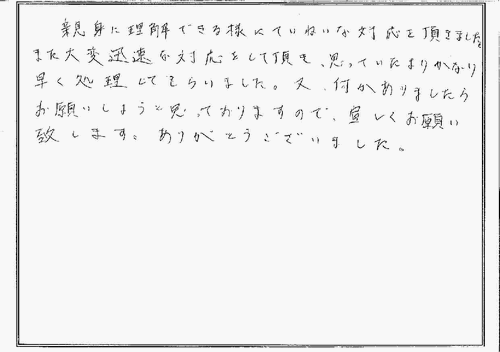 親身に理解できる様にていねいな対応を頂きました。
また大変迅速な対応をして頂き、思っていたよりかなり
早く処理してもらいました。又、何かありましたら
お願いしようと思っておりますので、宜しくお願い
致します。ありがとうございました。